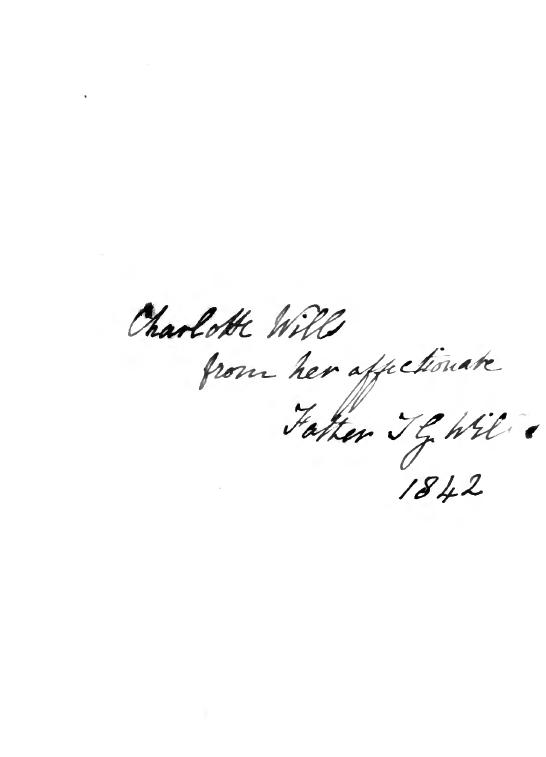 Charlotte Wills
from her affectionate
Father T G Wil
1842